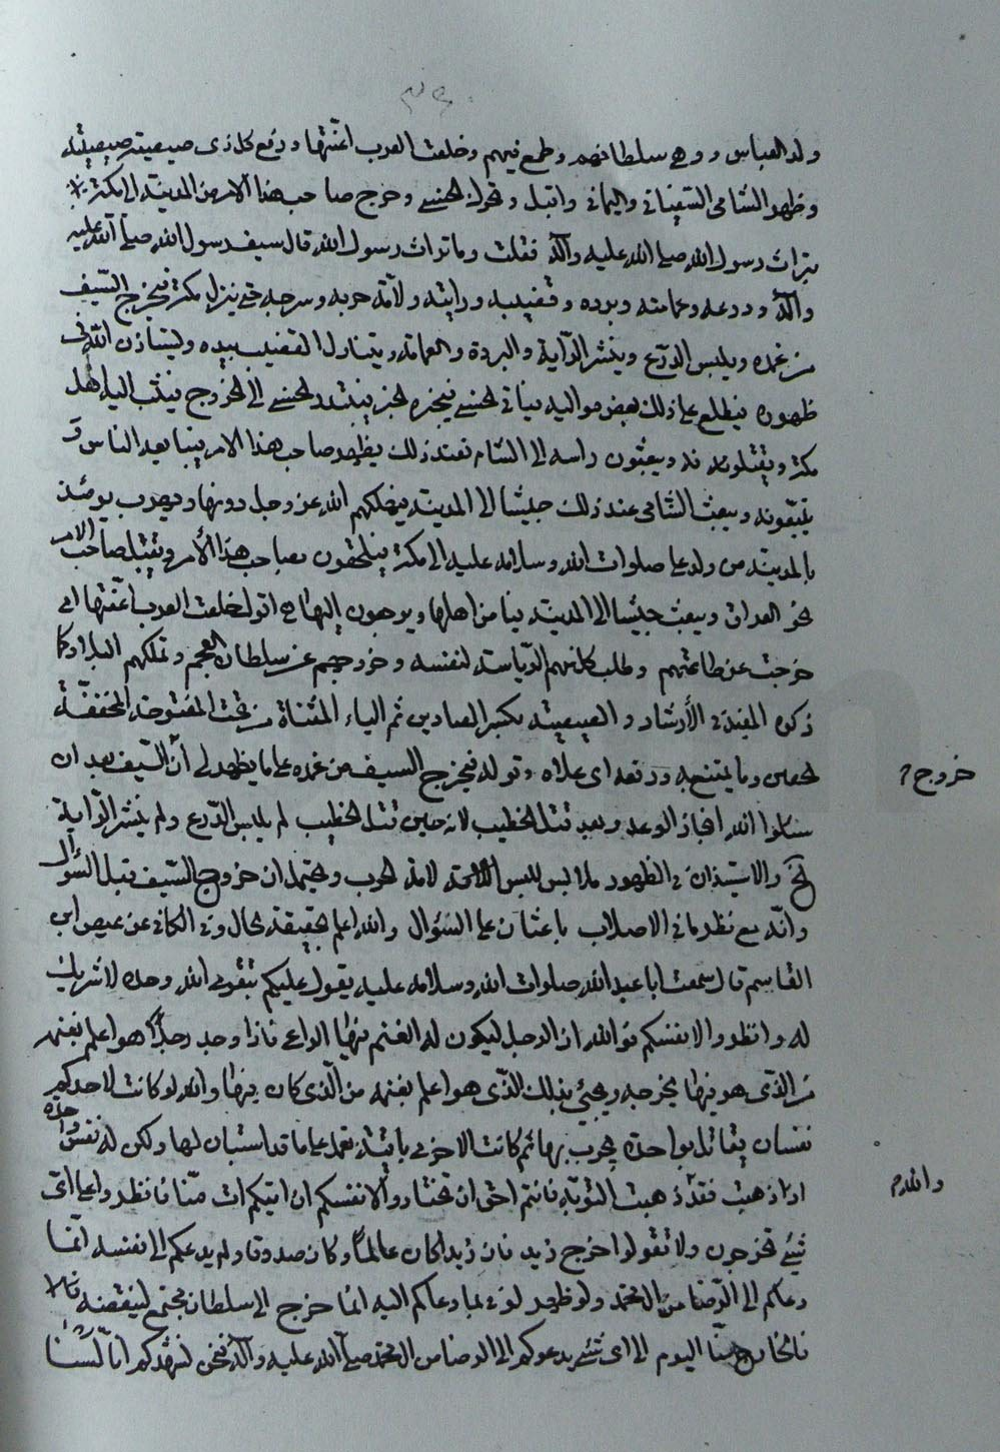 ولد العباس ووهى سلطانهم وطمع فيهم وخلعت العرب اعنتها ودفع كل ذى صيصيته صيصيته
وظهر الشامى السفيانى واليمانى واقبل وتحرك الحسنى وخرج صاحب هذا الامر من المدينة الى مكة
بتراث رسول الله صلى الله عليه وآله فقلت وما تراث رسول الله قال سيف رسول الله صلى الله عليه
وآله ودرعه وعمامته وبرده وقضيبه ورايته ولامة حربه وسرجه حتى ينزل مكة فيخرج السيف
من غمده ويلبس الدرع وينشر الراية والبردة والعمامة ويتناول القضيب بيده وليستأذن الله فى
ظهوره فيطلع على ذلك بعض مواليه فيأتى الحسنى فيخبره الخبر فيبتدر الحسنى الى الخروج فيثب اليه اهل
مكة ويقتلونه ويبعثون راسه الى الشام فعند ذلك يظهر صاحب هذا الامر فيبايعه الناس و
يتبعونه ويبعث الشامى عند ذلك جيشا الى المدينة فيهلكهم الله عز وجل دونها ويهرب يومئذ
بالمدينة من ولد على صلوات الله وسلامه عليه الى مكة فيلحقون بصاحب هذا الأمر ويقبل صاحب الامر
نحو العراق ويبعث جيشا الى المدينة فيأمن اهلها ويرجعون إليها اقول خلعت العرب اعنتها اى
خرجت عن طاعتهم وطلب كل منهم الرياسة لنفسه وخروجهم عن سلطان العجم وتملكهم البلاد كما
ذكره المفيد فى الأرشاد والصيصية بكسر الصادين ثم الياء المثناة من تحت المفتوحة المخففة
الحصن وما يمتنع به ورفعه اى علاه وقوله فيخرج السيف من غمده على ما يظهر لى أن السيف بعد ان
خروج
سئلوا الله انجاز الوعد وبعد قتل الخطيب لانه حين قتل الخطيب لم يلبس الدرع ولم ينشر الراية
الخ والاستيذان فى الظهور لامة الحرب ويحتمل ان خروج السيف قبل السؤال
وانه مع نظر ما فى الاصلاب باعثان على السؤال والله اعلم بحقيقة الحال وفى الكافى عن عيص ابن
القاسم قال سمعت ابا عبد الله صلوات الله وسلامه عليه يقول عليكم بتقوى الله وحده لا شريك
له وانظروا لانفسكم فو الله ان الرجل ليكون له الغنم فيها الراعى فاذا وجد رجلا هو اعلم بغنمه
من الذى هو فيها يخرجه ويجئ بذلك الذى هو اعلم بغنمه من الذى كان فيها والله لو كانت لاحدكم
نفسان يقاتل بواحدة يجرب بها ثم كانت الاخرى باقية فعمل على ما قد استبان لها ولكن له نفس واحدة
اذا ذهبت فقد ذهبت التوبة فانتم احق ان تختاروا لانفسكم ان اتيكم ات منا فانظروا على اى
والله
شئ تخرجون ولا تقولوا خرج زيد فان زيدا كان عالما وكان صدوقا ولم يدعكم الى نفسه انما
دعاكم الى الرضا من ال محمد ولو ظهر لوفى بما دعاكم اليه انما خرج الى سلطان مجتمع لينقضه
فالخارج منا اليوم الى اى شئ يدعوكم الى الرضا من ال محمد صلى الله عليه وآله فنحن نشهدكم انا لسنا